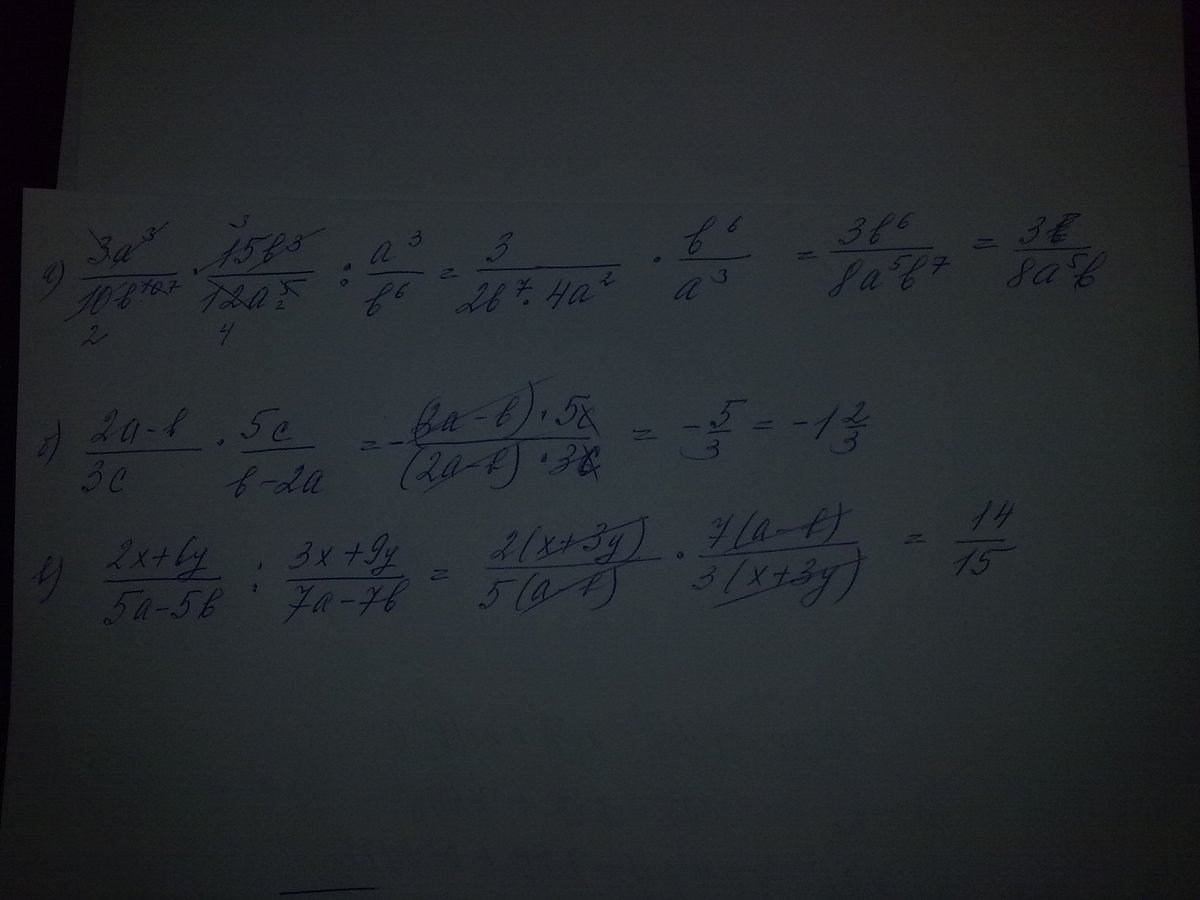 а) 3a³/10b¹⁰ ⁷ · 15b³/12a⁵ : a³/b⁶ = 3/2b⁷·4a² · b⁶/a³ = 3b⁶/8a⁵b⁷ = 3/8a⁵b
3 2 4 2
б) 2a-b/3c · 5c/b-2a = -(2a-b)·5c/(2a-b)·3c = -5/3 = -1 2/3
в) 2x+6y/5a-5b : 3x+9y/7a-7b = 2(x+3y)/5(a-b) · 7(a-b)/3(x+3y) = 14/15